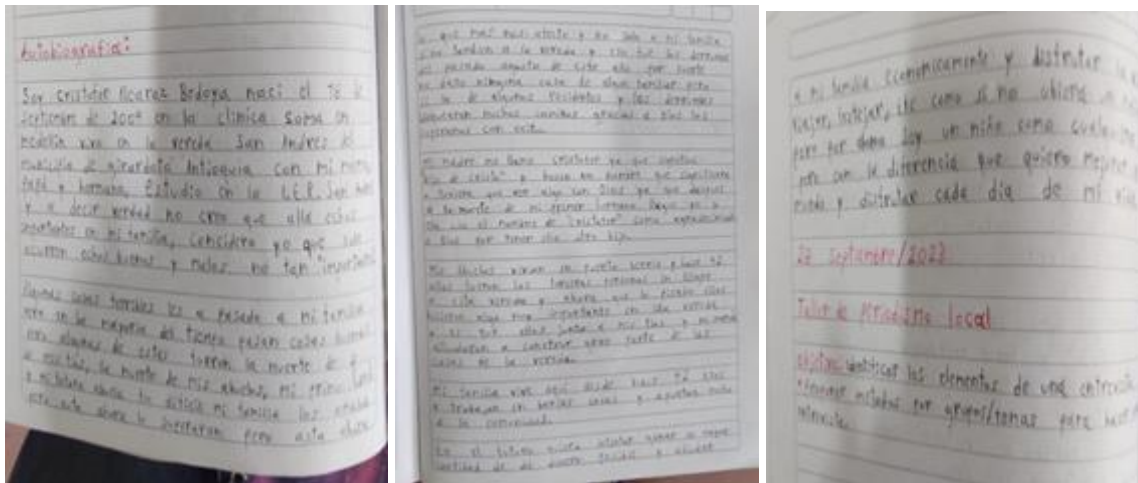 Autobiografia:
Soy cristofer Alcaraz Bedoya naci el 18 de
septiembre de 2009 en la clinica Soma en
medellin vivo en la vereda San Andres del
municipio de girardota Antioquia con mi mama
papá y hermana, Estudio en la I.E.R. San Andres
y a decir verdad no creo que alla cosas
importantes en mi familia, considero yo que solo
ocurren cosas buenas y malas no tan importantes
Algunas cosas terribles les a pasado a mi familia
pero en la mayoria del tiempo pasan cosas buenas
pero algunas de estas fueron la muerte de
a mis tias, la muerte de mis abuelos, mi primo
pero asta ahora
lo que mas nos afecto y no solo a mi familia
sino tambien a la vereda y eso fue los derrumbes
del pasado de este año por suerte
no daño ninguna casa de algun familiar pero
si la de algunos residentes y los derrumbes
muchos caminos gracias a Dios los
superamos con exito.
Mi madre me llamo cristofer ya que significa
de cristo" y busco un nombre que significara
o tuviera que ver algo con Dios ya que despues
de la muerte de mi primer hermano llegue yo y
me dio el nombre de "cristofer" como agradecimiento
a Dios por tener otro hijo.
Mis abuelos vivian en puerto berrio y hace 42
años fueron las terceras personas en llegar
a esta vereda y ahora que lo pienso ellos
hicieron algo muy importante en esta vereda
y es que ellos junto a mis tias y mi mamá
ayudaron a construir gran parte de las
casas de la vereda.
Mi familia vive aqui desde hace 42 años
y trabajan en varias cosas y aportan mucho
a la comunidad.
En el futuro quiero estudiar ganar la mayor
cantidad de de dinero posible y ayudar
a mi familia economicamente y disfrutar la
viajar, festejar, etc como si no ubiera un
pero por ahora soy un niño como cualquier
pero con la diferencia que quiero mejorar el
mundo y disfrutar cada dia de mi vida
27 septiembre/2023
Taller de periodismo local
objetivo: identificar los elementos de una entrevista
por grupos/temas para hacer
entrevista.